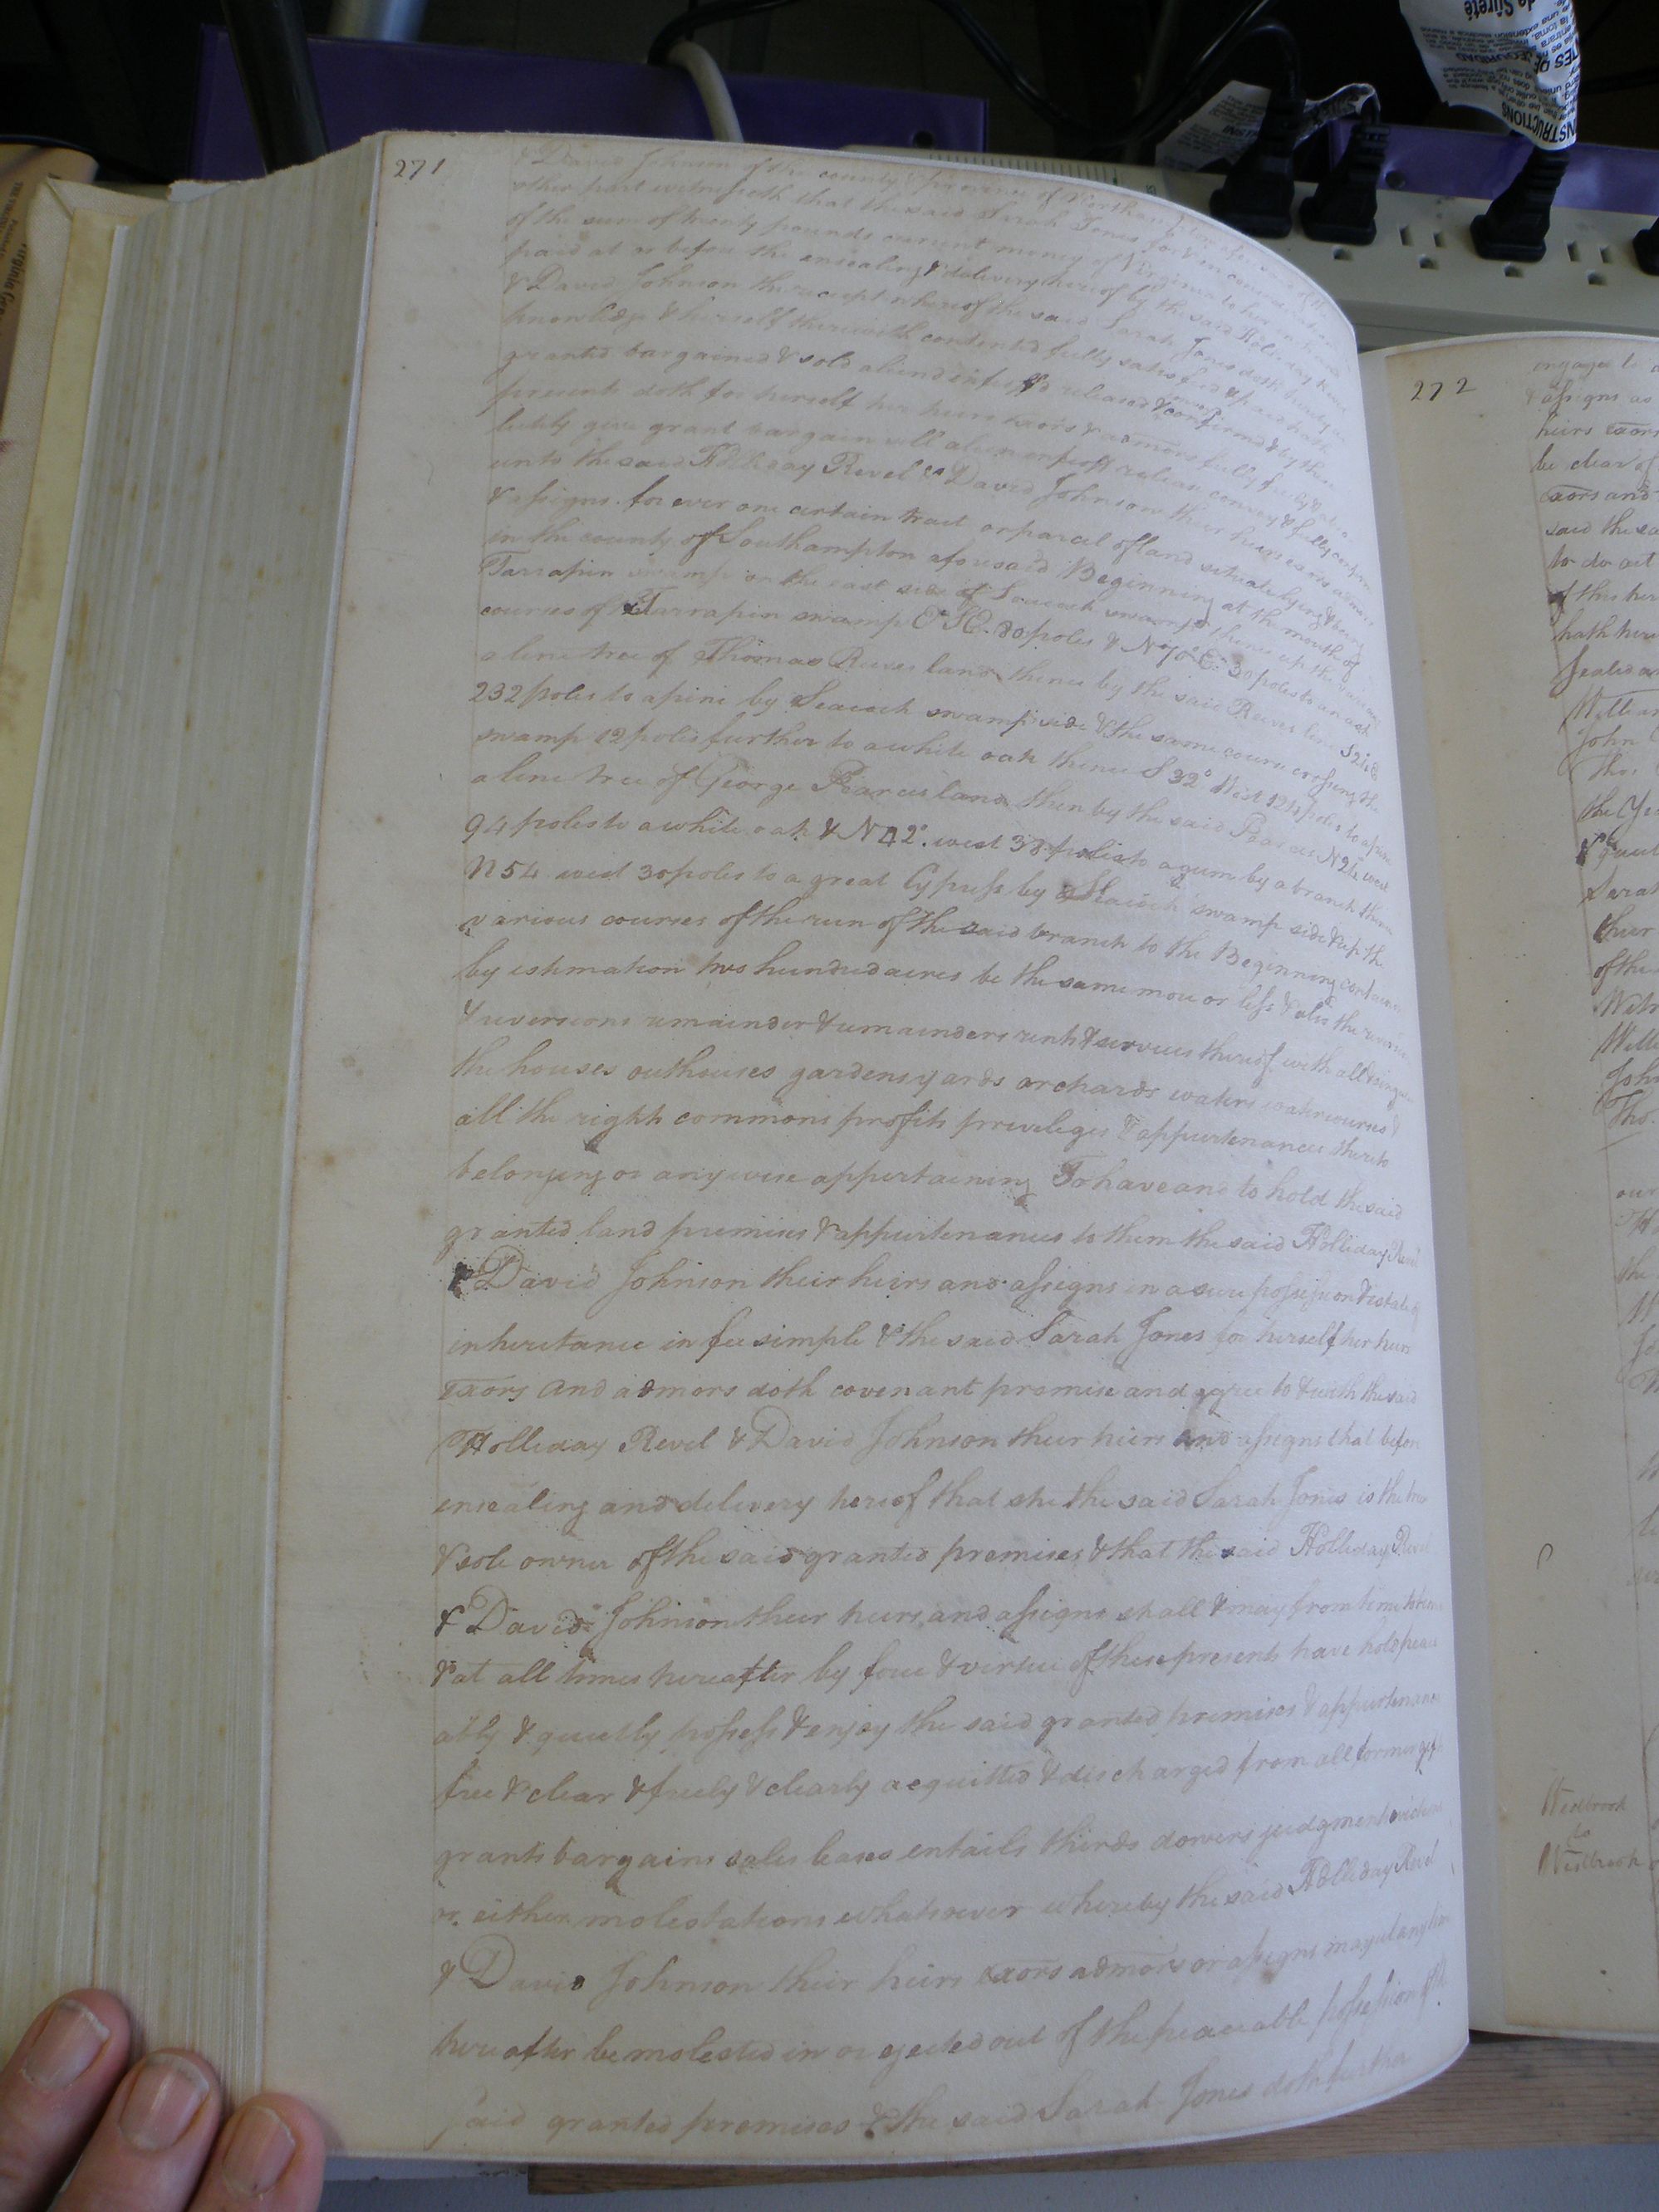 271
& David Johnson of the county & province of Northampton of the
other part witnesseth that the said Sarah Jones for & in consideration
of the sum of twenty pounds current money of Virginia to her in hand
paid at or before the ensealing & delivery hereof by the said Holliday Revel
& David Johnson the receipt whereof the said Sarah Jones doth hereby
knowledge & herself therewith contented fully satisfied & paid hath
granted bargained & sold aliend infeoffd released & confirmd & by these
presents doth for herself her heirs exors & admors fully freely &
lutely give grant bargain sell alien enfeoff release convey & fully confirm
unto the said Holliday Revel & David Johnson their heirs exors admors
& assigns for ever one certain tract or parcel of land situate lying & being
in the county of Southampton aforesaid Beginning at the mouth of
Tarrapin swamp on the east side of swamp thence up the
courses of Tarrapin swamp 80 poles & N 70° E 30 poles to an ash
a line tree of Thomas Reeves land thence by the said Reeves line
232 poles to a pine by swamp side & the same course crossing the
swamp 12 poles further to a white oak thence S 32° West poles to a pine
a line tree of George Pearces land then by the said Pearces west
94 poles to a white oak & N 42° west 38 poles to a gum by a branch thence
N 54 west 30 poles to a great Cypress by swamp side & up the
various courses of the run of the said branch to the Beginning
by estimation two hundred acres be the same more or less & also the
& reversions remainder & remainders rents & services thereof with all
the houses outhouses gardens yards orchards waters watercourses &
all the rights commons profits priveleges & appurtenances thereto
belonging or any wise appertaining To have and to hold the said
granted land premises & appurtenances to them the said Holliday Revel
& David Johnson their heirs and assigns in a sure possession & estate of
inheritance in fee simple & the said Sarah Jones for herself her heirs
exors and admors doth covenant promise and agree to & with the said
Holliday Revel & David Johnson their heirs and assigns that before
ensealing and delivery hereof that she the said Sarah Jones is the true
& sole owner of the said granted premises & that the said Holliday Revel
& David Johnson their heirs and assigns shall & may from time to time
& at all times hereafter by force & virtue of these presents have hold peace
ably & quietly possess & enjoy the said granted premises & appurtenances
free & clear & freely & clearly acquitted & discharged from all former gifts
grants bargains sales leases entails thirds dowers judgments
or either molestations whatsoever whereby the said Holliday Revel
& David Johnson their heirs exors admors or assigns may at any time
hereafter be molested in or ejected out of the peaceable possession of the
said granted premises & the said Sarah Jones doth further
272
& assigns as
heirs exors
be clear of
exors and
said the
to do act
of this
hath
Sealed
William
John
Thos
the
&
Sarah
their
of the
Witn
Will
John
Tho.
Westbrook
to
Westbrook